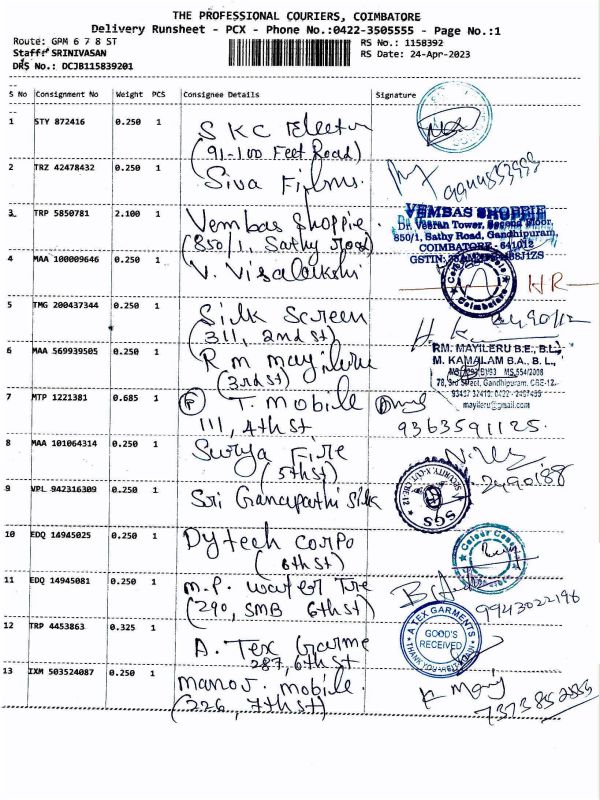 THE PROFESSIONAL COURIERS, COIMBATORE
Delivery Runsheet - PCX - Phone No.:0422-3505555 - Page No.:1
Route: GPM 6 7 8 ST
RS No.: 1158392
Stafff SRINIVASAN
RS Date: 24-Apr-2023
DRS No.: DCJB115839201
S No Consignment No Weight PCS Consignee Details Signature
1 STY 872416 0.250 1 SKC Electro
(91-100 Feet Road)
2 TRZ 42478432 0.250 1 Siva Films.
3 TRP 5850781 2.100 1 Vembas Shoppie
(850/1, Sathy road)
VEMBAS SHOPPIE
Dr. Veeran Tower, Second Floor,
850/1, Sathy Road, Gandhipuram,
COIMBATORE - 641012
GSTIN:
4 MAA 100009646 0.250 1 V. Visalakshi
HR
5 TMG 200437344 0.250 1 Silk Screen
(311, 2nd st)
6 MAA 569939505 0.250 1 R m mayileru
(3rd st)
RM. MAYILERU B.E., B.L.,
M. KAMALAM B.A., B. L.,
MS 554/2008
78, 3rd Street, Gandhipuram, CBE-12.
93457 32419, 0422 - 2497455
mayileru@gmail.com
7 MTP 1221381 0.685 1 P T. mobile
111, 4th st
9363591125.
8 MAA 101064314 0.250 1 Surya Fire
(5th st)
9 VPL 942316309 0.250 1 Sri Ganapathi silk
2490188
SGS
10 EDQ 14945025 0.250 1 Dytech corpo
(6th st)
11 EDQ 14945081 0.250 1 m.p. water Tre
(290, SMB 6th st)
9943022196
12 TRP 4453863 0.325 1 A. Tex Garme
287, 6th st
A TEX GARMENTS
GOOD'S
RECEIVED
13 IXM 503524087 0.250 1 manoj. mobile.
(226, 7th st)
K Manoj
7373852555